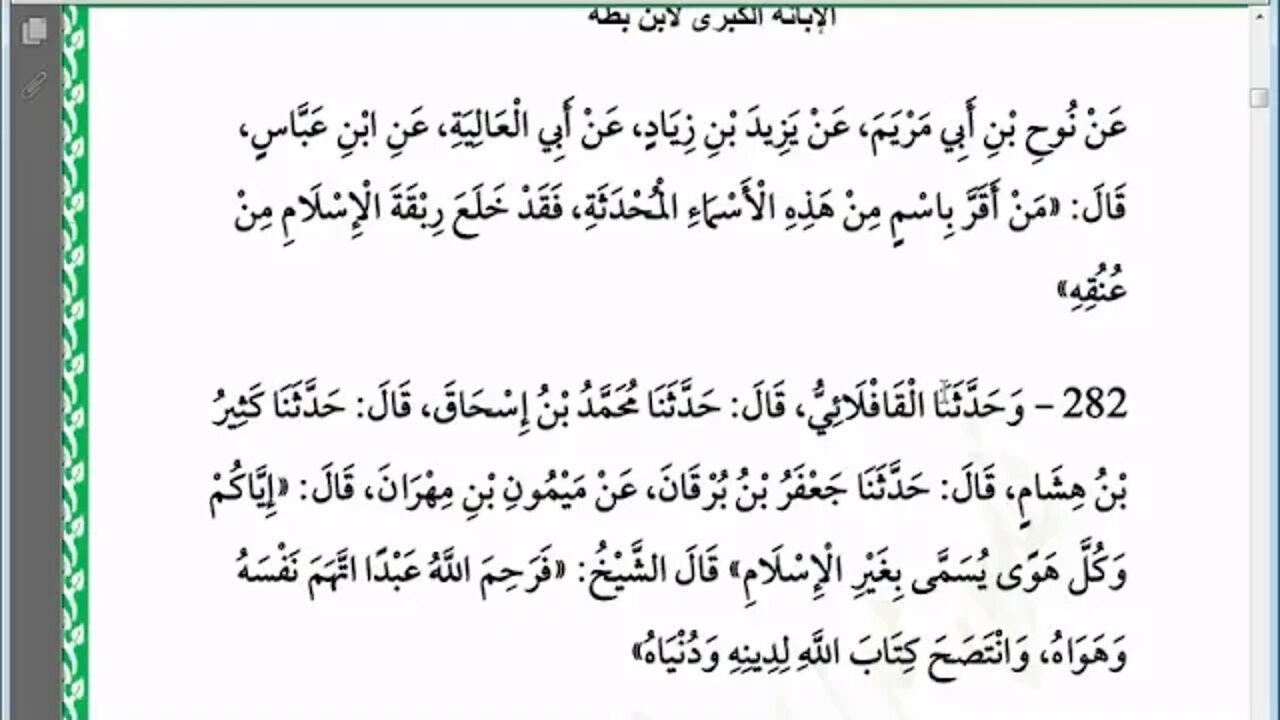 الإبانة الكبرى لابن بطة
عَنْ نُوحِ بْنِ أَبِي مَرْيَمَ، عَنْ يَزِيدَ بْنِ زِيَادٍ، عَنْ أَبِي الْعَالِيَةِ، عَنِ ابْنِ عَبَّاسٍ،
قَالَ: «مَنْ أَقَرَّ بِاسْمٍ مِنْ هَذِهِ الْأَسْمَاءِ الْمُحْدَثَةِ، فَقَدْ خَلَعَ رِبْقَةَ الْإِسْلَامِ مِنْ
عُنُقِهِ»
282 – وَحَدَّثَنَا الْقَافْلَائِيُّ، قَالَ: حَدَّثَنَا مُحَمَّدُ بْنُ إِسْحَاقَ، قَالَ: حَدَّثَنَا كَثِيرُ
بْنُ هِشَامٍ، قَالَ: حَدَّثَنَا جَعْفَرُ بْنُ بُرْقَانَ، عَنْ مَيْمُونِ بْنِ مِهْرَانَ، قَالَ: «إِيَّاكُمْ
وَكُلَّ هَوًى يُسَمَّى بِغَيْرِ الْإِسْلَامِ» قَالَ الشَّيْخُ: «فَرَحِمَ اللَّهُ عَبْدًا اتَّهَمَ نَفْسَهُ
وَهَوَاهُ، وَانْتَصَحَ كِتَابَ اللَّهِ لِدِينِهِ وَدُنْيَاهُ»